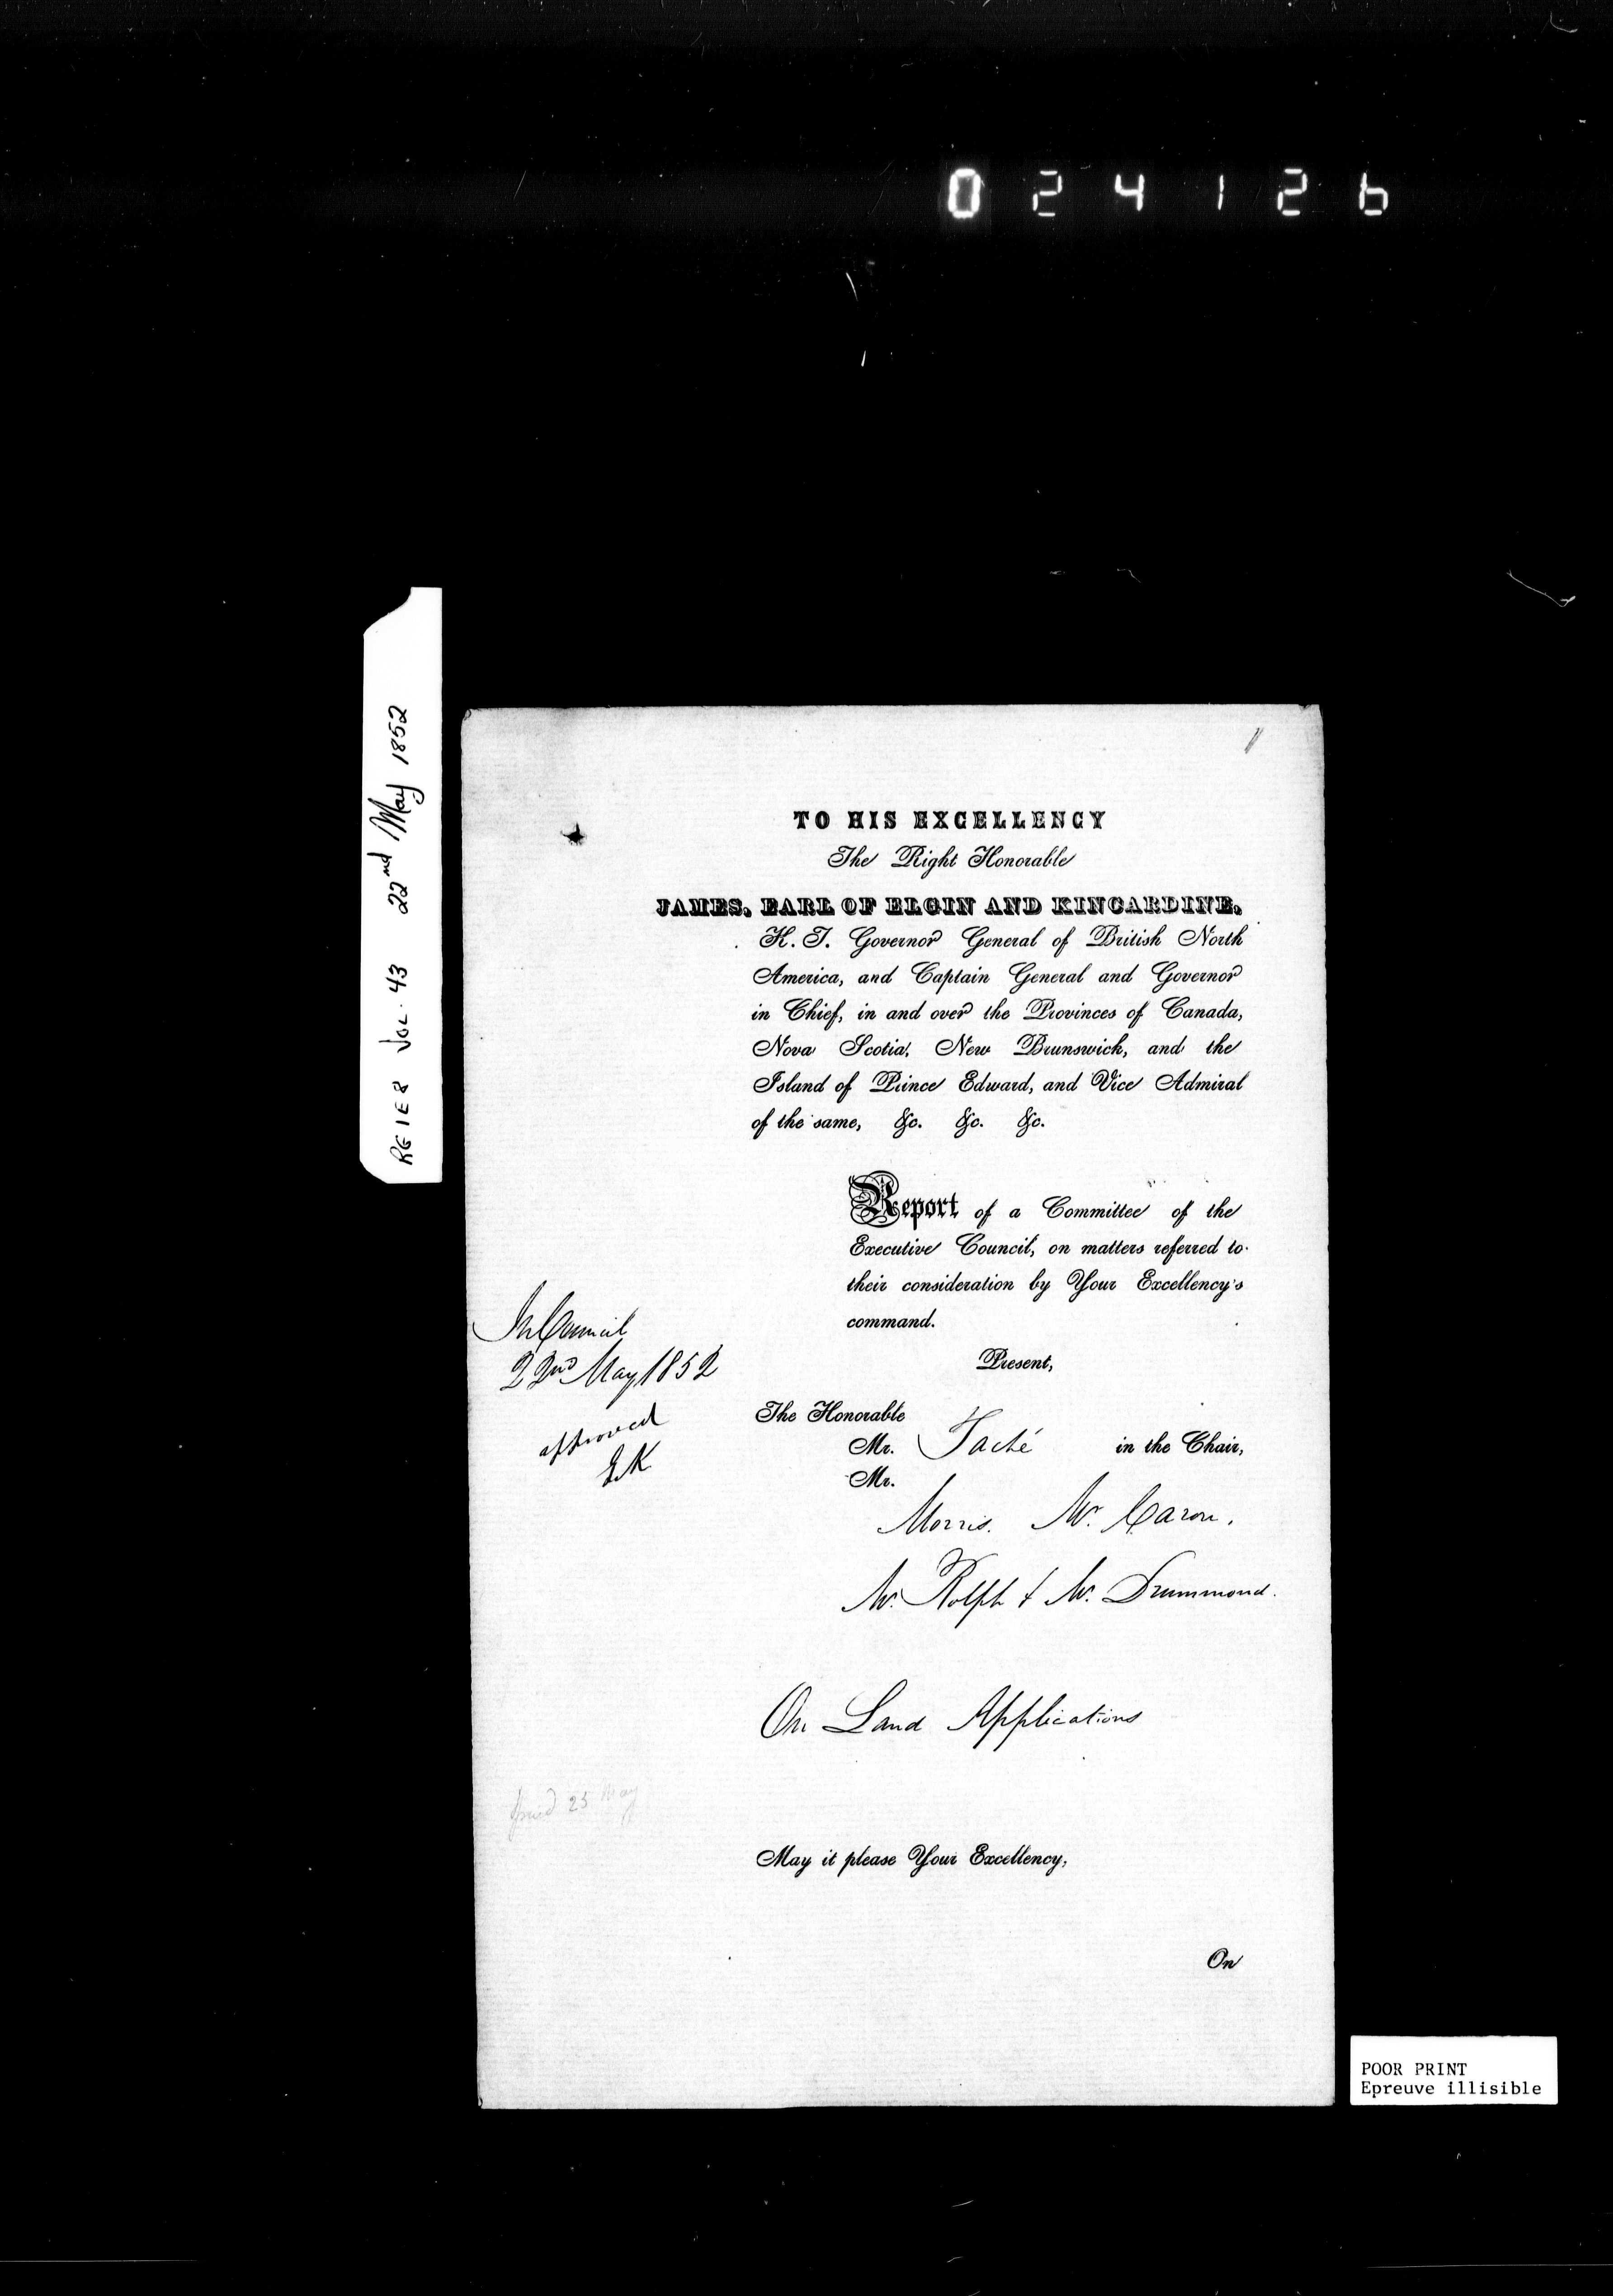 024126
RG 1 E 8 Vol. 43 22nd May 1852
TO HIS EXCELLENCY
The Right Honorable
JAMES, EARL OF ELGIN AND KINCARDINE,
K. T. Governor General of British North
America, and Captain General and Governor
in Chief, in and over the Provinces of Canada,
Nova Scotia, New Brunswick, and the
Island of Prince Edward, and Vice Admiral
of the same, &c. &c. &c.
Report of a Committee of the
Executive Council, on matters referred to
their consideration by Your Excellency's
command.
In Council
22nd May 1852
approved
E.K
Present,
The Honorable
Mr. Taché in the Chair,
Mr.
Morris. Mr. Caron.
Mr. Rolph & Mr. Drummond.
On Land Applications
25 May
May it please Your Excellency,
On
POOR PRINT
Epreuve illisible